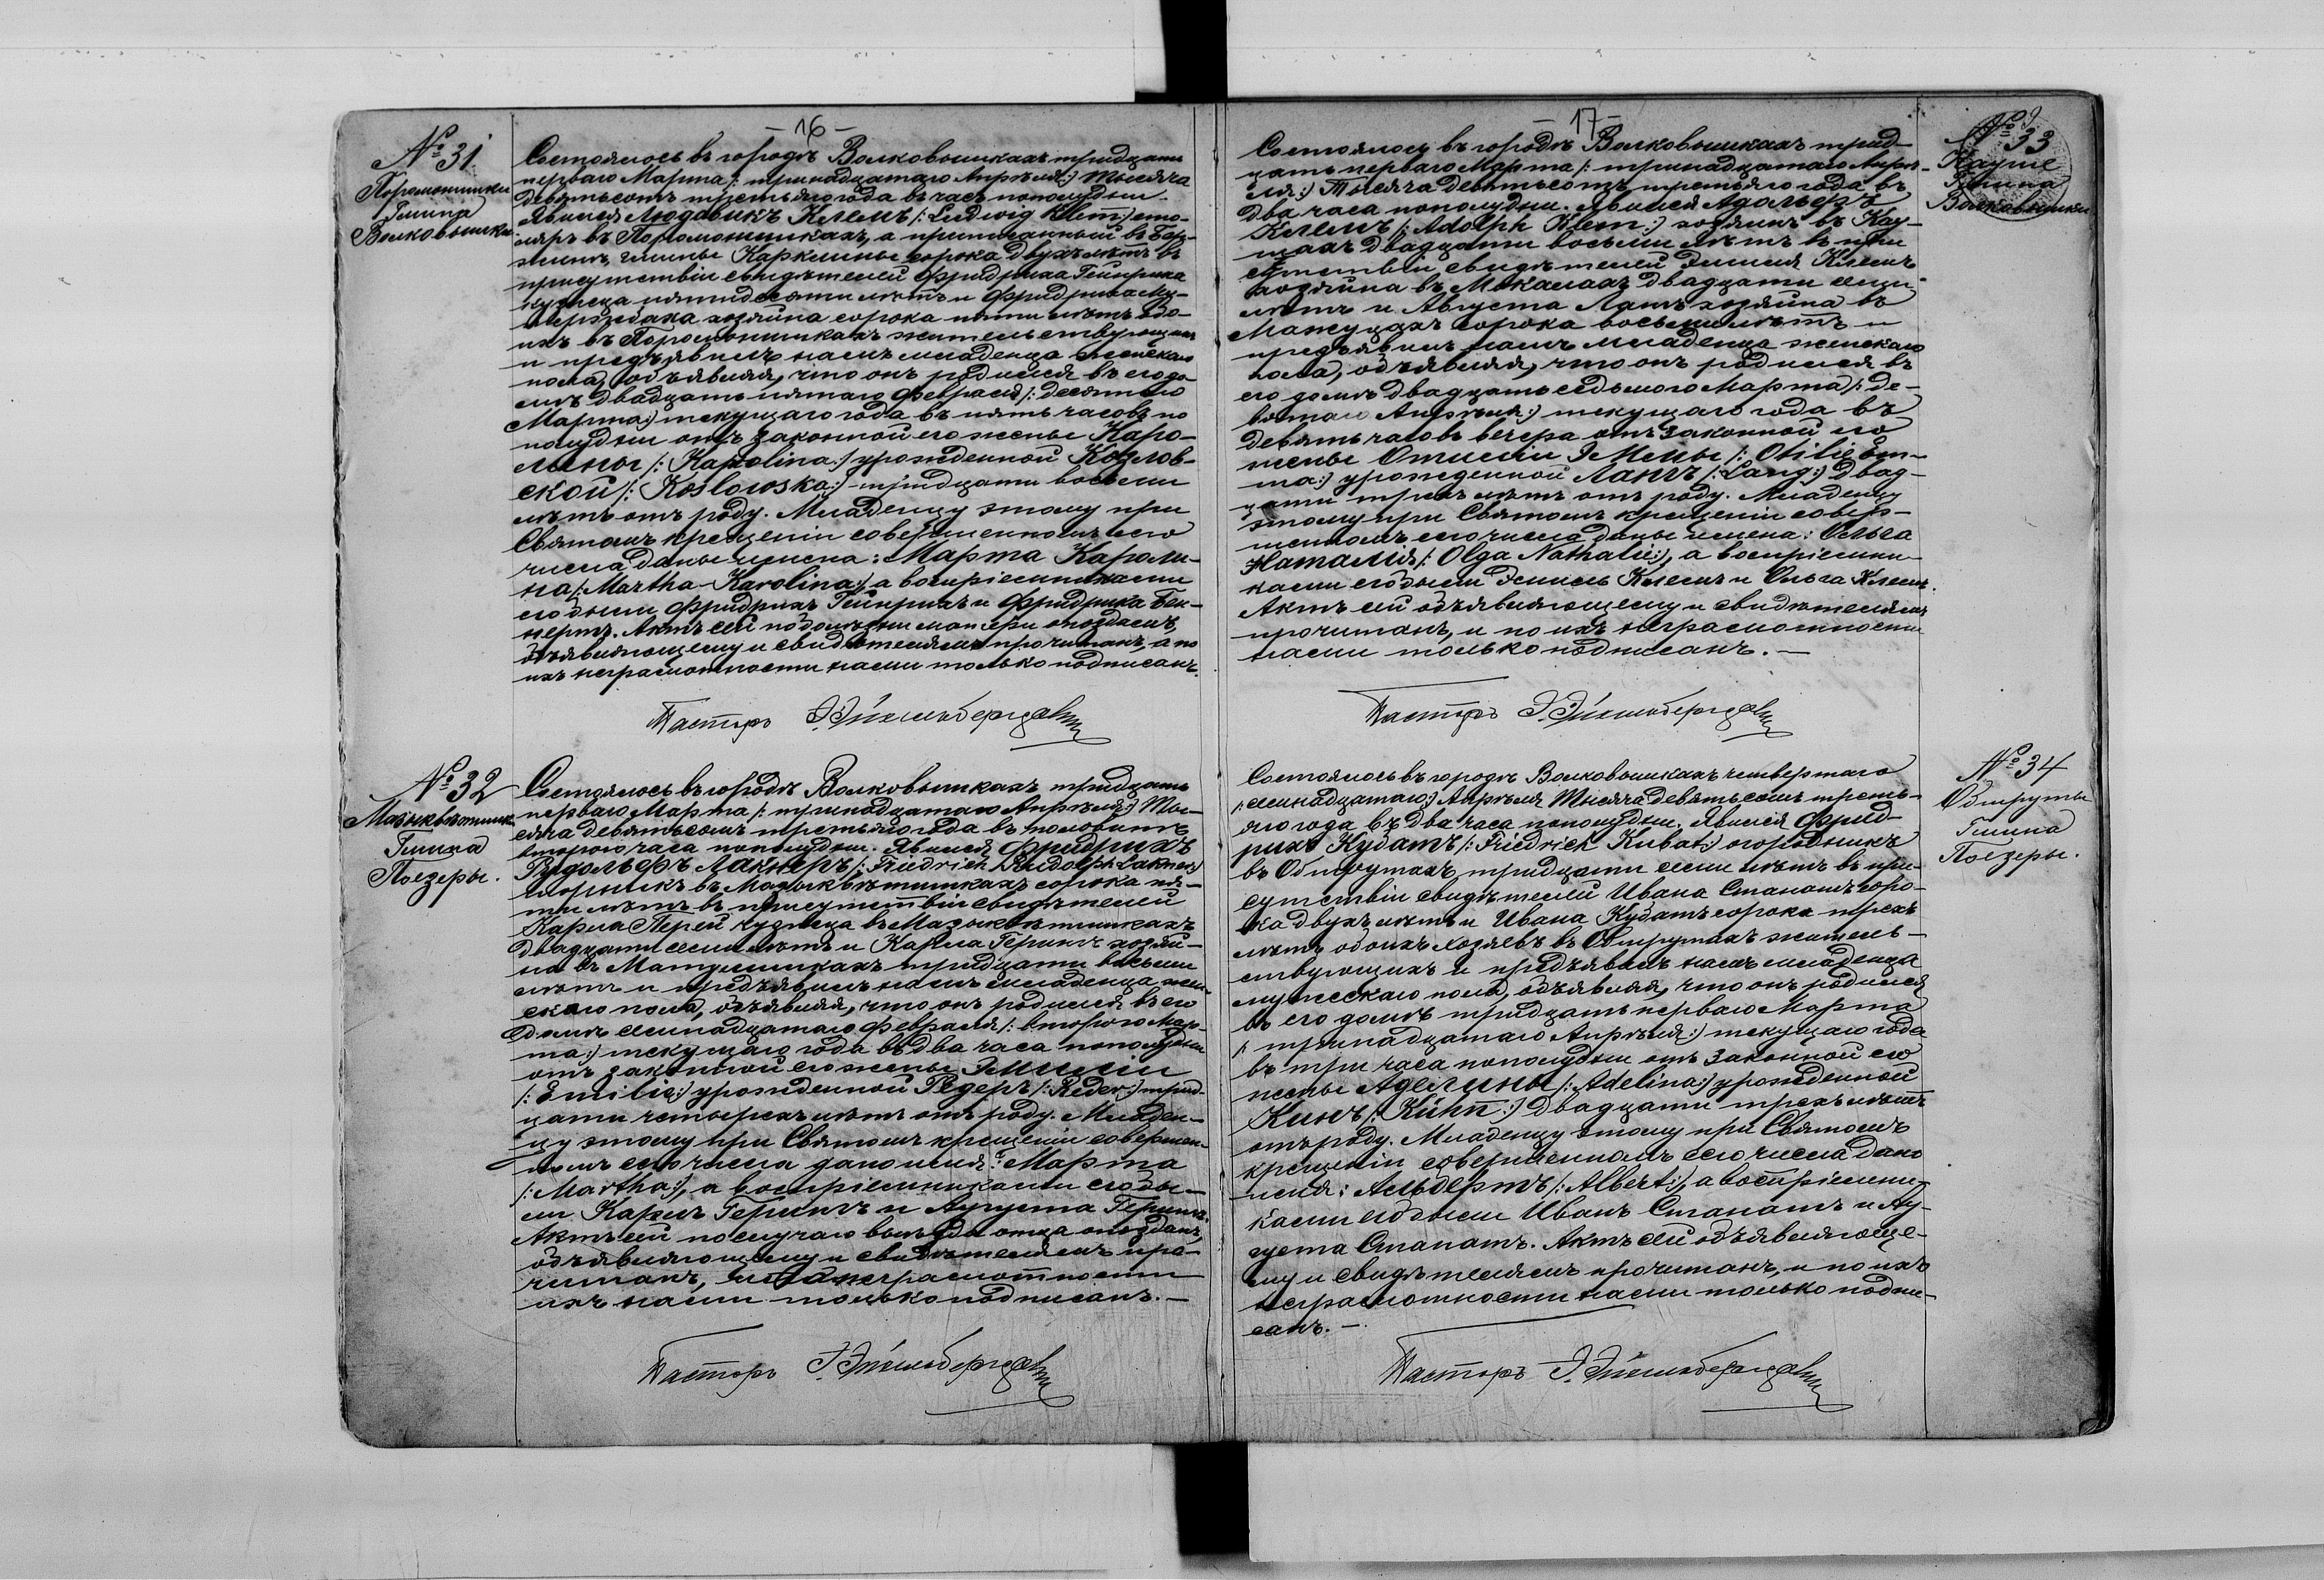 - 16 -
№ 31.
Поромонишки
Гмина
Волковышки.
Состоялось въ городѣ Волковышкахъ тридцать
перваго Марта /: тринадцатаго Апрѣля :/ тысяча
девятьсотъ третьяго года въ часъ пополудни.
Явился Людовикъ Клемъ /: Ludwig Klem :/ сто-
ляръ въ Поромонишкахъ, а приписанный въ
гмины Карклины сорока двухъ лѣтъ въ
присутствіи свидѣтелей Фридриха Гейнриха
кузнеца пятидесяти лѣтъ и Фридриха
хозяина сорока пяти лѣтъ обо-
ихъ въ Поромонишкахъ жительствующихъ
и предъявилъ намъ младенца женскаго
пола, объявляя, что онъ родился въ его до
мѣ двадцать пятаго Февраля /: десятаго
Марта :/ текущаго года въ пять часовъ по
полудни отъ законной его жены Каро-
лины /: Karolina :/ урожденной Козлов-
ской /: Koslowska :/ тридцати восьми
лѣтъ отъ роду. Младенцу этому при
Святомъ крещеніи совершенномъ сего
числа даны имена: Марта Кароли-
на /: Martha-Karolina :/ а воспріемниками
его были Фридрихъ Гейнрихъ и Фридрика
Актъ сей по болѣзни матери опозданъ,
объявляющему и свидѣтелямъ прочитанъ, а по
ихъ неграмотности нами только подписанъ.
Пасторъ
№ 32
Гмина
Поезеры.
Состоялось въ городѣ Волковышкахъ тридцать
перваго Марта /: тринадцатаго Апрѣля :/ Ты-
сяча девятьсотъ третьяго года въ половинѣ
второго часа пополудни. Явился Фридрихъ
Рудольфъ Лакнеръ /: Friedrich Rudolph Lakner :/
сорока пя-
ти лѣтъ въ присутствіи свидѣтелей
Карла Перей кузнеца въ
двадцати семи лѣтъ и Карла Герингъ хозяи-
на въ тридцати восьми
лѣтъ и предъявилъ намъ младенца жен-
скаго пола, объявляя, что онъ родился въ его
домѣ семнадцатаго Февраля /: второго Мар-
та :/ текущаго года въ два часа пополудни
отъ законной его жены Эмиліи
/: Emilie :/ урожденной Редеръ /: Reder :/ трид-
цати четырехъ лѣтъ отъ роду. Младен-
цу этому при Святомъ крещеніи совершен-
номъ сего числа дано имя: Марта
/: Martha :/, а воспріемниками его бы-
ли Карлъ Герингъ и Августа Герингъ.
Актъ сей по случаю выѣзда отца опозданъ,
объявляющему и свидѣтелямъ про-
читанъ, неграмотности
ихъ нами только подписанъ. —
Пасторъ
- 17 -
№ 33
Кауше
Гмина
Волковышки
Состоялось въ городѣ Волковышкахъ трид-
цать перваго Марта /: тринадцатаго Апрѣ-
ля :/ Тысяча девятьсотъ третьяго года въ
два часа пополудни. Явился Адольфъ
Клемъ /: Adolph Klem :/ хозяинъ въ Кау-
шахъ двадцати восьми лѣтъ въ при
сутствіи свидѣтелей Эмиля Клемъ
хозяина въ двадцати семи
лѣтъ и Августа Лангъ хозяина въ
сорока восьми лѣтъ и
предъявилъ намъ младенца женскаго
пола, объявляя, что онъ родился въ
его домѣ двадцать седьмого Марта /: де-
вятаго Апрѣля :/ текущаго года въ
девять часовъ вечера отъ законной его
жены Отиліи Эммы /: Otilie Em-
ma :/ урожденной Лангъ /: Lang :/ двад-
цати трехъ лѣтъ отъ роду. Младенцу
этому при Святомъ крещеніи совер-
шенномъ сего числа даны имена: Ольга
Наталія /: Olga Nathalie :/, а воспріемни-
ками его были Эмиль Клемъ и Ольга Клемъ.
Актъ сей объявляющему и свидѣтелямъ
прочитанъ, и по ихъ неграмотности
нами только подписанъ. —
Пасторъ
№ 34
Обшруты
Гмина
Поезеры.
Состоялось въ городѣ Волковышкахъ четвертаго
/: семнадцатаго :/ Апрѣля Тысяча девятьсотъ треть-
яго года въ два часа пополудни. Явился Фрид-
рихъ Кубатъ /: Friedrich Kubat :/ огородникъ
въ Обшрутахъ тридцати семи лѣтъ въ при-
сутствіи свидѣтелей Ивана Станатъ соро-
ка двухъ лѣтъ и Ивана Кубатъ сорока трехъ
лѣтъ обоихъ хозяевъ въ Обшрутахъ житель-
ствующихъ и предъявилъ намъ младенца
мужескаго пола, объявляя, что онъ родился
въ его домѣ тридцать перваго Марта
/: тринадцатаго Апрѣля :/ текущаго года
въ три часа пополудни отъ законной его
жены Аделины /: Adelina :/ урожденной
Кинъ /: Kühn :/ двадцати трехъ лѣтъ
отъ роду. Младенцу этому при Святомъ
крещеніи совершенномъ сего числа дано
имя: Альбертъ /: Albert :/, а воспріемни-
ками его были Иванъ Станатъ и Ав-
густа Станатъ. Актъ сей объявляюще-
му и свидѣтелямъ прочитанъ, и по ихъ
неграмотности нами только подпи-
санъ. —
Пасторъ